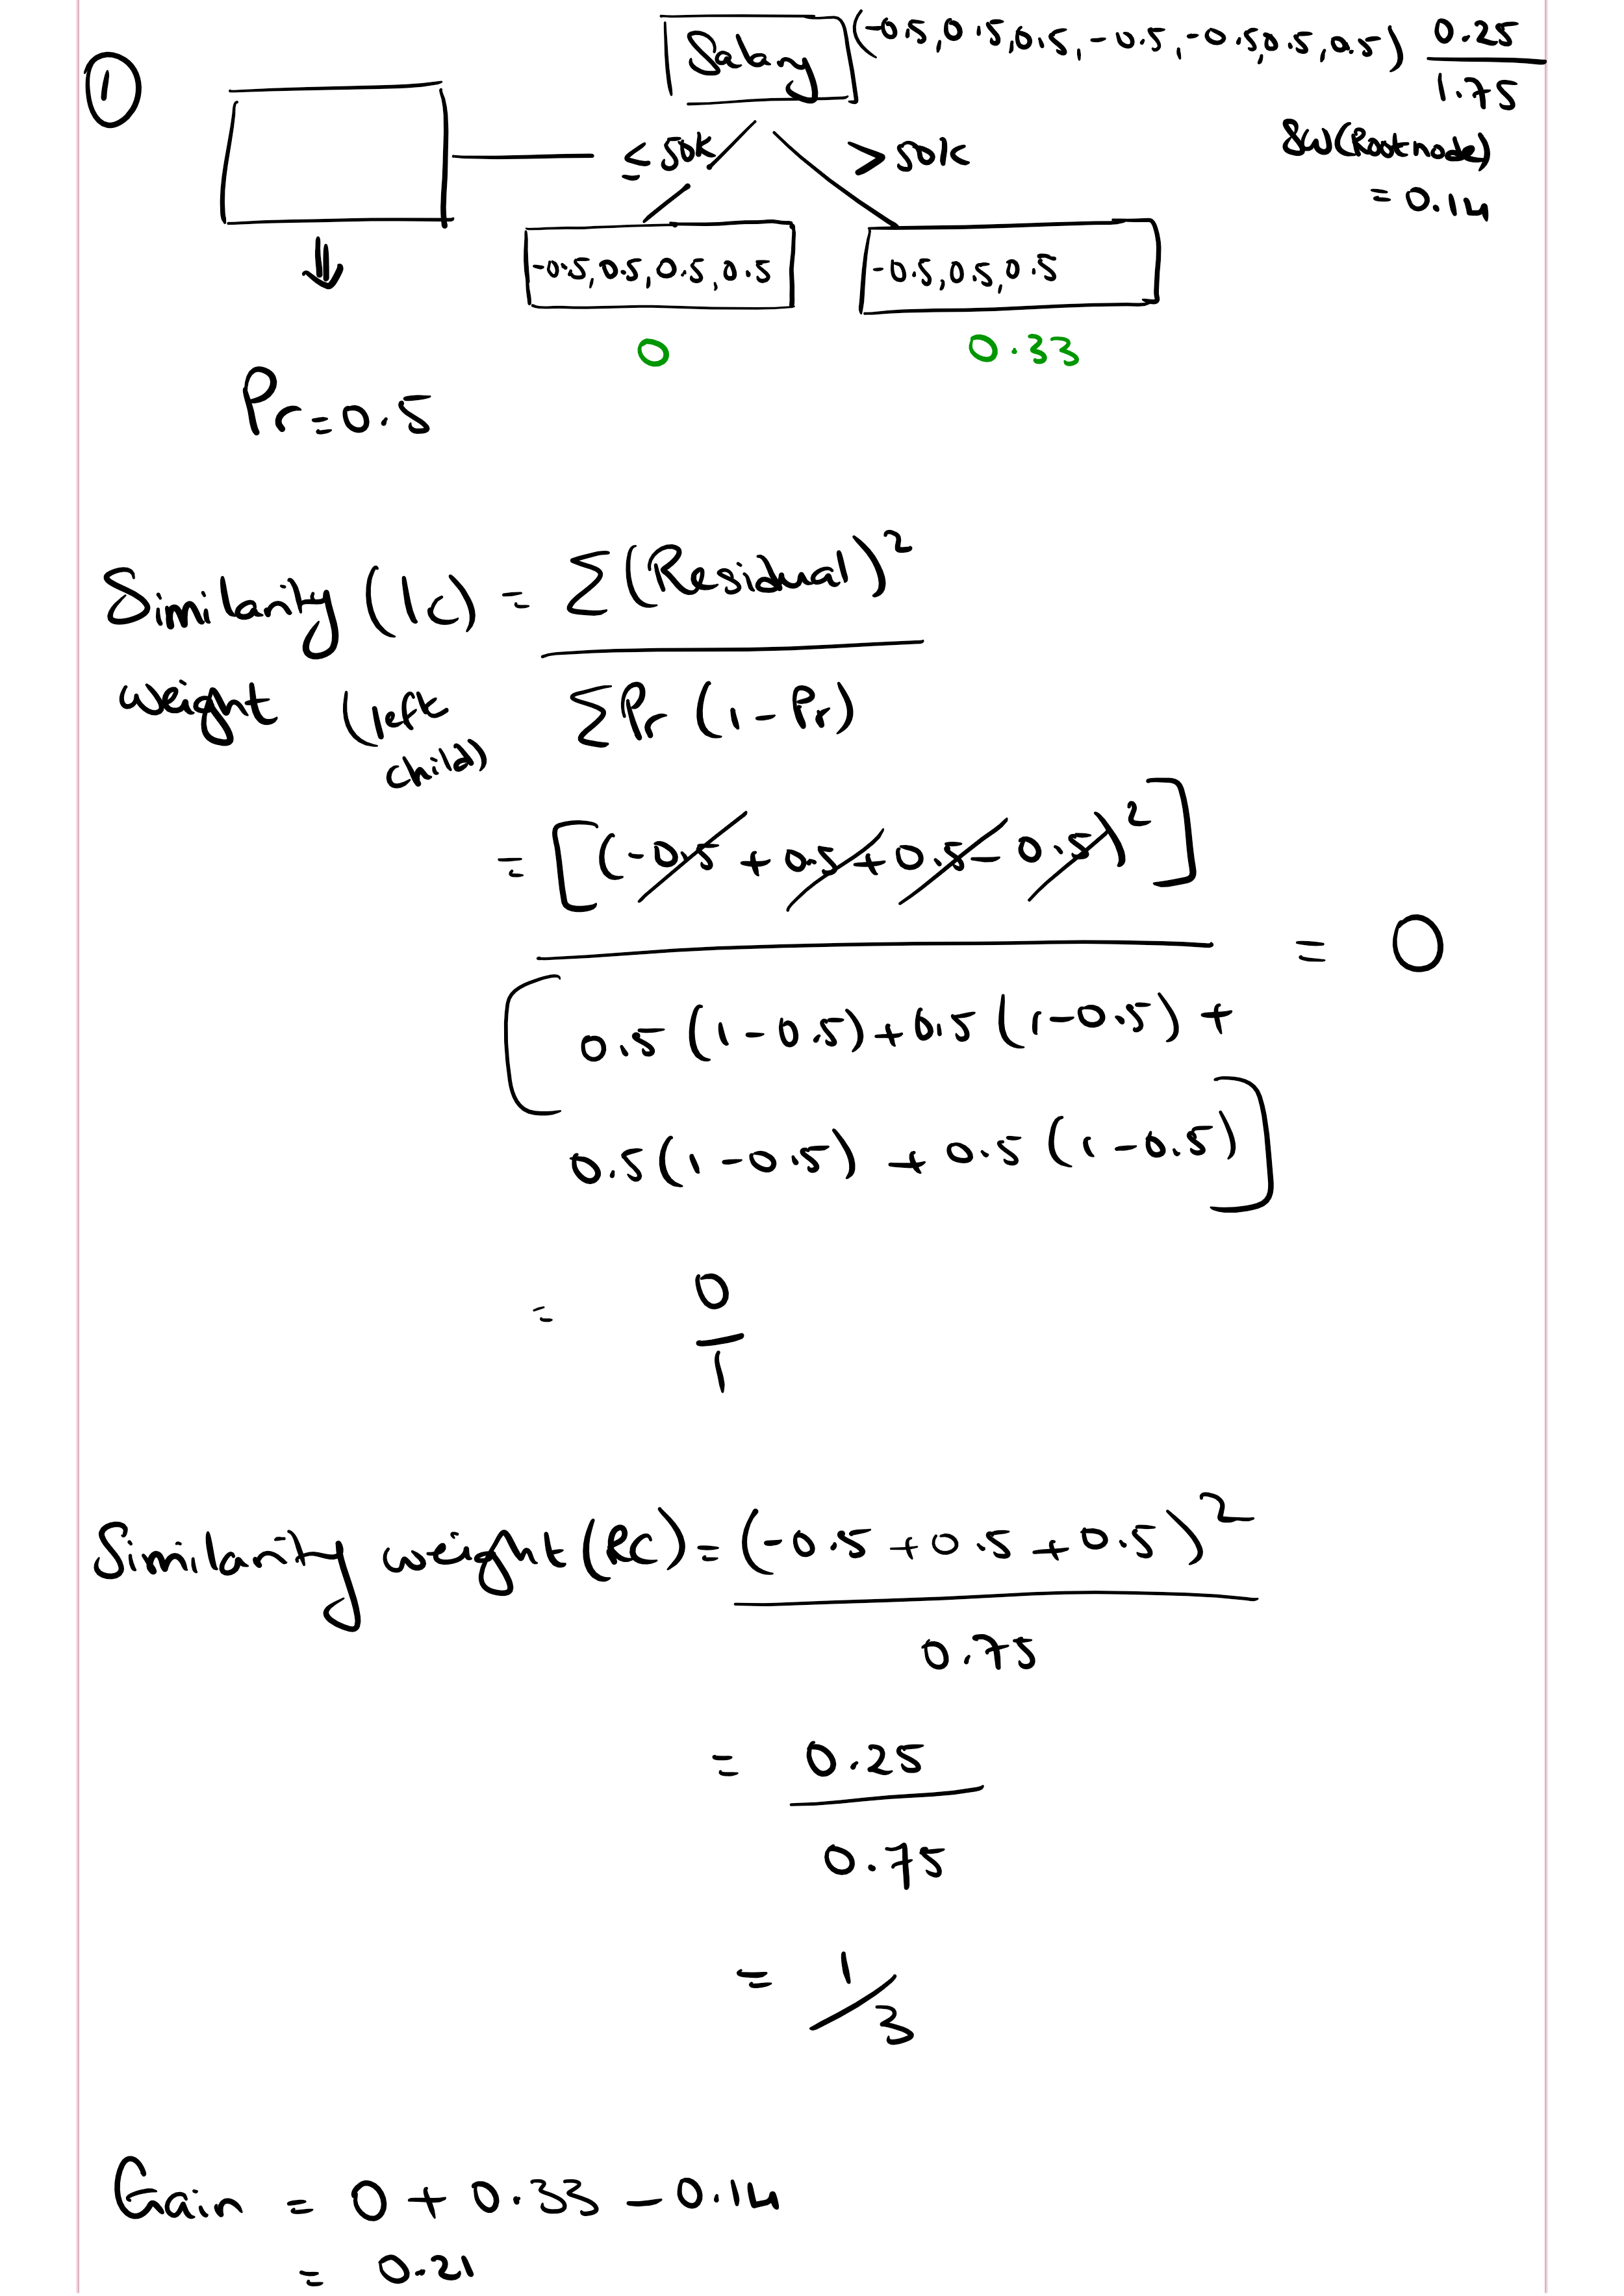 ① Salary (-0.5, 0.5, 0.5, -0.5, -0.5, 0.5, 0.5) 0.25
1.75
≤50K >50K
SW(Root node)
= 0.14
-0.5, 0.5, 0.5, 0.5
-0.5, 0.5, 0.5
0
0.33
Pr = 0.5
Similarity (lc) = Σ(Residual)²
weight (left child) ΣPr (1 - Pr)
= [(-0.5 + 0.5 + 0.5 - 0.5)²]
= 0
[0.5 (1 - 0.5) + 0.5 (1 - 0.5) +
0.5 (1 - 0.5) + 0.5 (1 - 0.5)]
= 0
1
Similarity weight (RC) = (-0.5 + 0.5 + 0.5)²
0.75
= 0.25
0.75
= 1/3
Gain = 0 + 0.33 - 0.14
= 0.21